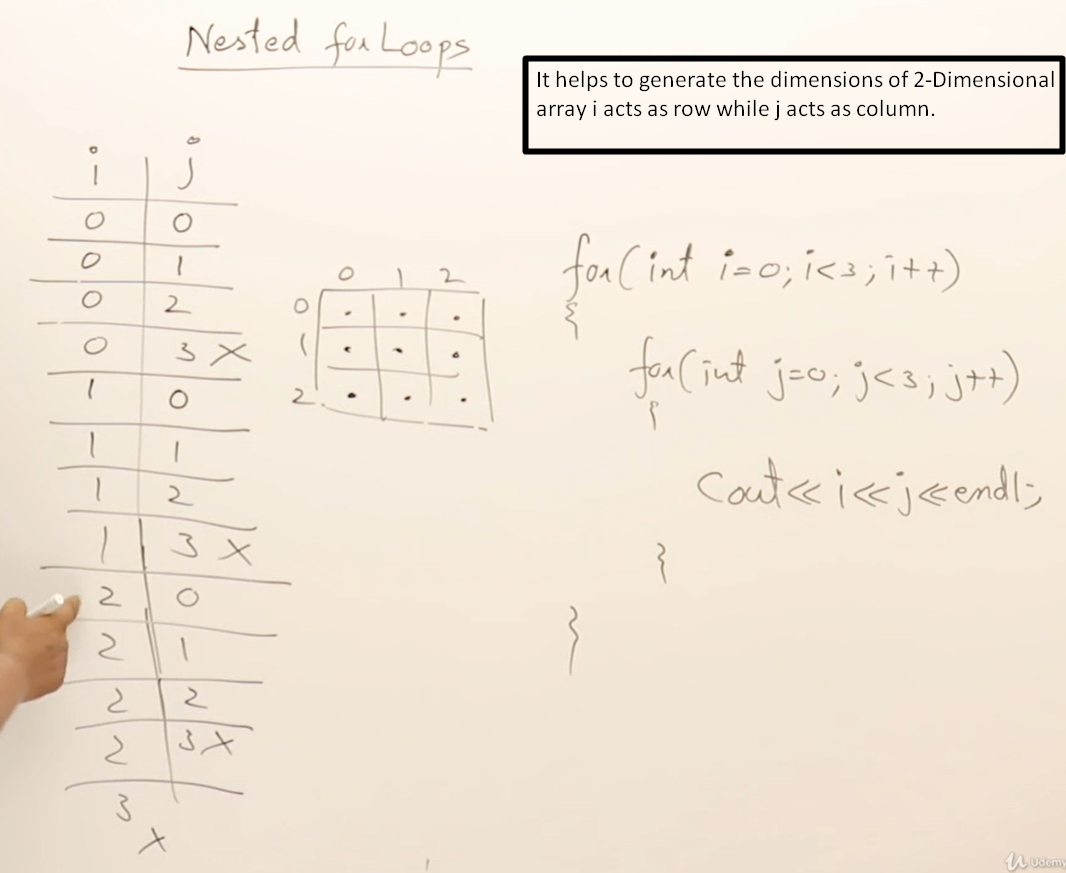 Nested for Loops
It helps to generate the dimensions of 2-Dimensional
array i acts as row while j acts as column.
i j
0 0
0 1
0 2
0 3 X
1 0
1 1
1 2
1 3 X
2 0
2 1
2 2
2 3 X
3
X
0 1 2
0
1
2
for(int i=0; i<3; i++)
{
for(int j=0; j<3; j++)
{
Cout<<i<<j<<endl;
}
}
Udemy